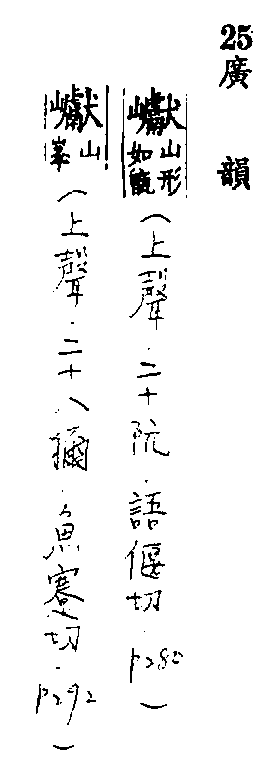 25廣韻
巘山形如甑(上聲.二十阮.語偃切.p280)
巘山峯(上聲.二十八獮.魚蹇切.p292)